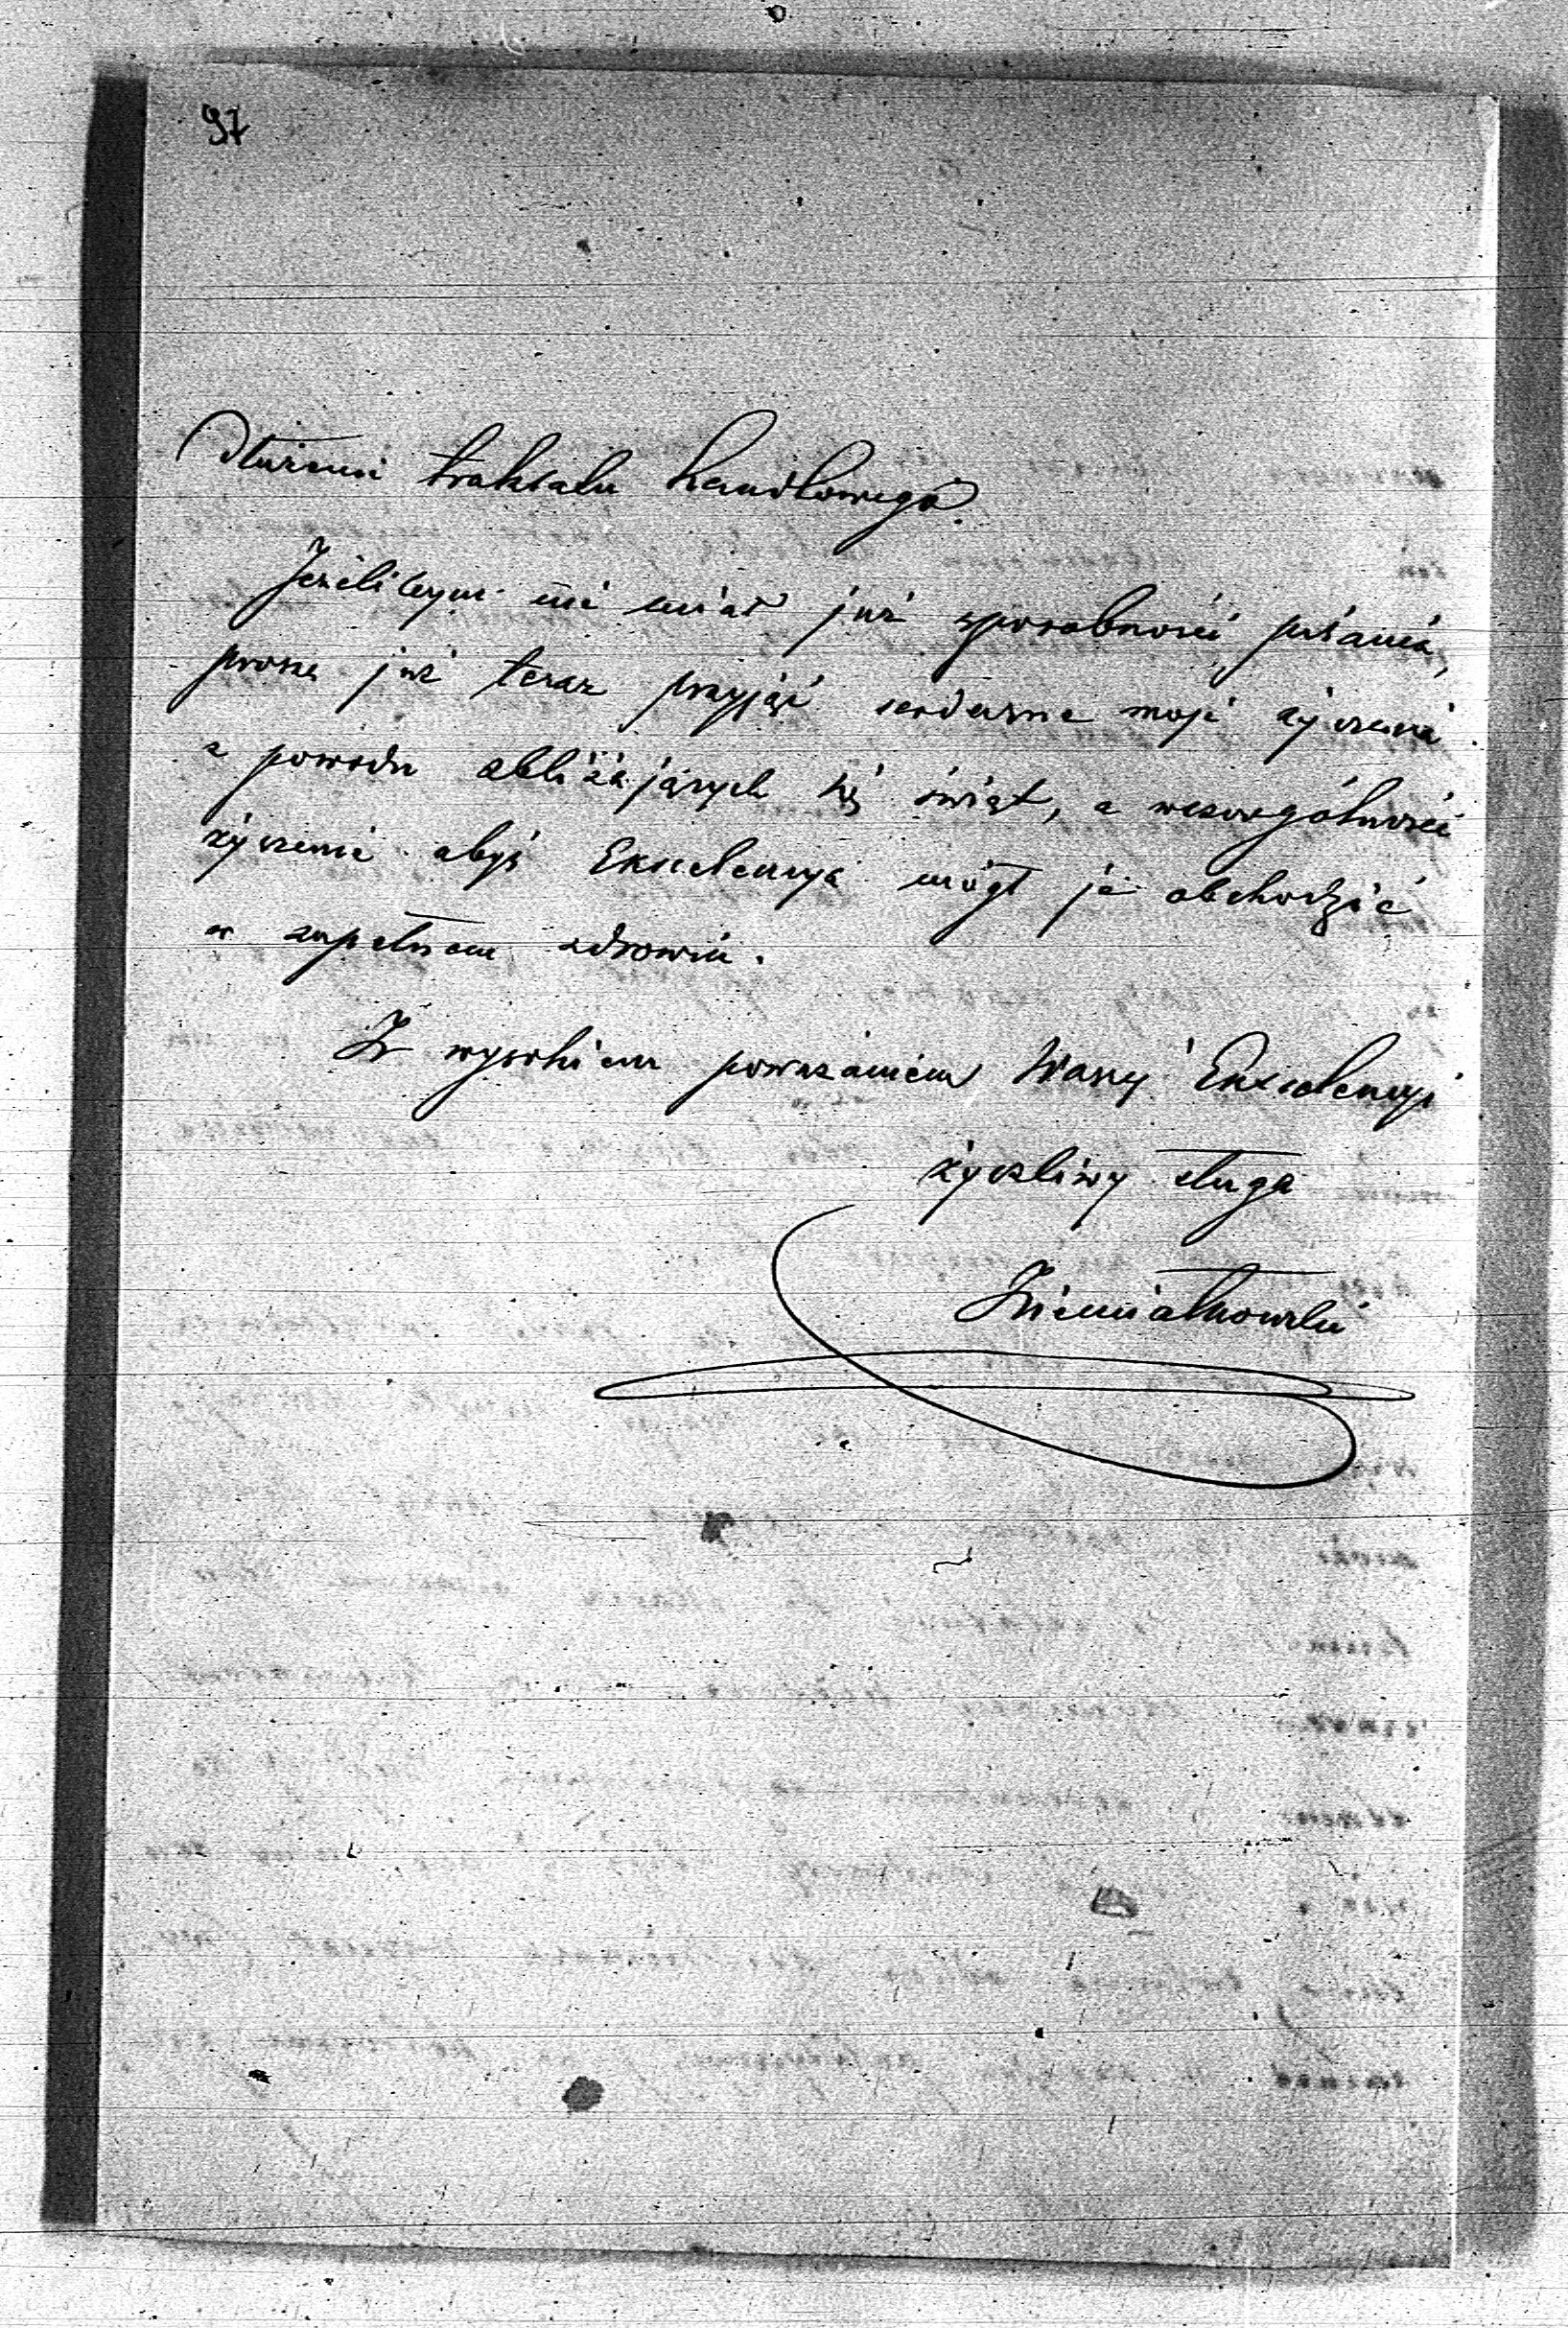 97
dłużeni traktatu handlowego.
Jeżelibym nie miał już sposobności pisania,
proszę już teraz przyjąć serdeczne moje życzenia
z powodu zbliżających się świąt, a wszczególności
życzenie abyś Exscelencya mógł je obchodzić
w zupełnem zdrowiu.
Z wysokiem poważaniem Waszej Exscelencyi
życzliwy sługa
Ziemiałkowski